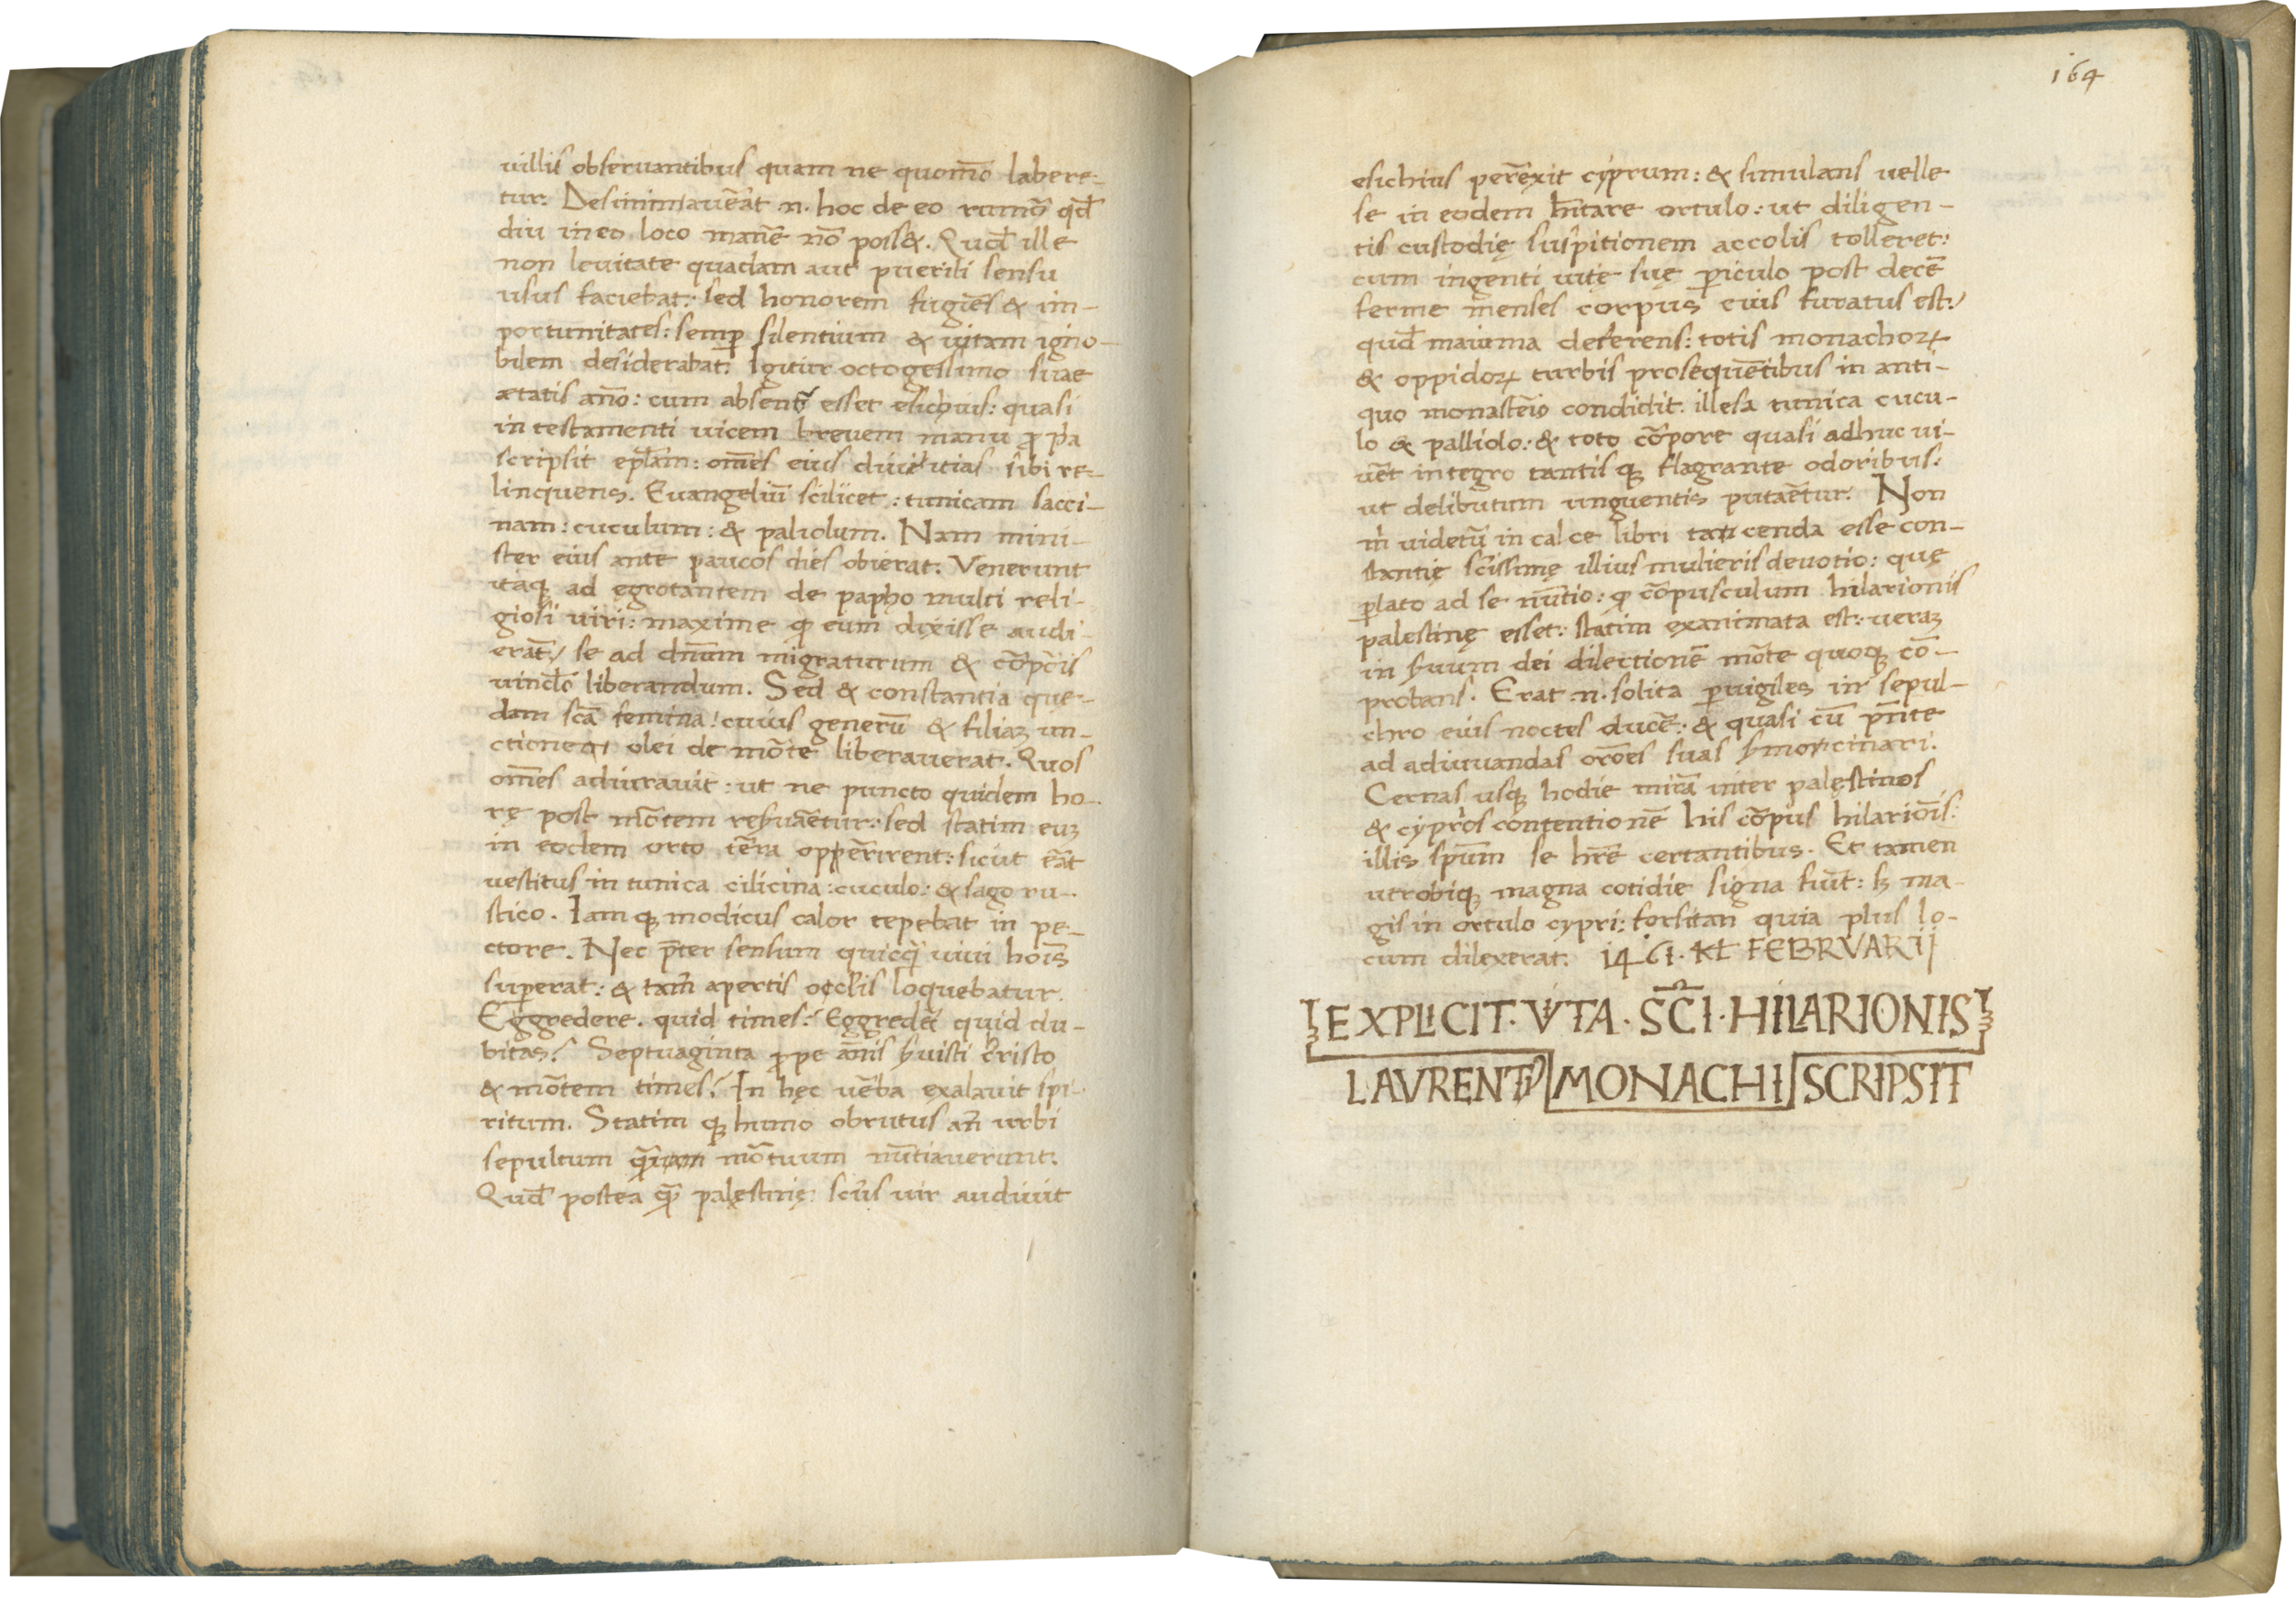 villis observantibus quam ne quom̄o labere-
tur. Disseminavēat n. hoc de eo rumō qđ
diu in eo loco manē nō poss&. Quođ ille
non levitate quadam aut puerili sensu
usus faciebat: sed honorem fugiēs & im-
portunitates: semꝑ silentium & vitam igno-
bilem desiderabat. Igitur octogessimo suae
ætatis an̄o: cum absens esset esichius: quasi
in testamenti vicem brevem manu ꝓpa
scripsit ep̄lam: om̄es eius divitias sibi re-
linquens. Evangeliū scilicet: tunicam sacci-
nam: cuculum: & paliolum. Nam mini-
ster eius ante paucos dies obierat. Venerunt
itaqꝫ ad egrotantem de papho multi reli-
giosi viri: maxime ꝙ eum dixisse audi-
erāt: se ad dn̄um migraturum & cōpoīs
vinclō liberandum. Sed & constantia que-
dam sc̄a femina: cuius generū & filiaꝫ un-
ctione olei de mōte liberaverat. Quos
om̄es adiuravit: ut ne puncto quidem ho-
rę post mōtem reẜvaētur: sed statim euꝫ
in eodem orto tēra opperirent: sicut ēat
vestitus in tunica cilicina: cuculo: & sago ru-
stico. Iam qꝫ modicus calor tepebat in pe-
ctore. Nec p̄ter sensum quicq̄ vivi hoīs
suꝑerat: & tam̄ apertis occlis loquebatur.
Eggredere. quid times? Eggredē quid du-
bitas? Septuaginta ꝓpe an̄is ẜvisti cristo
& mōtem times? In hęc vēba exalavit spi-
ritum. Statim qꝫ humo obrutus an̄ urbi
sepultum q̄ mōtuum nūtiaverunt.
Quođ postea q̄ palęstinę sc̄us vir audivit
164
esichius perēxit cyprum: & simulans velle
se in eodem h̄itare ortulo: ut diligen-
tis custodię suspitionem accolis tolleret:
cum ingenti vitę suę ꝑiculo post decē
ferme menses corpus eius furatus est:
quođ maiuma deferens: totis monachoꝝ
& oppidoꝝ turbis prosequētibus in anti-
quo monastēio condidit. illesa tunica cucu-
lo & palliolo: & toto cōpore quasi adhuc vi-
vēt integro tantis qꝫ flagrante odoribus:
ut delibutum unguentis putaētur. Non
m̄ videtū in calce libri tacenda esse con-
stantię sc̄issimę illius mulieris devotio: quę
ꝑlato ad se nūtio: ꝙ cōpusculum hilarionis
palestinę esset: statim exanimata est: veraꝫ
in ẜvum dei dilectionē mōte quoqꝫ cō-
probans. Erat n. solita ꝑvigiles in sepul-
chro eius noctes ducē: & quasi cū p̄nte
ad adiuvandas orōes suas ẜmocinari.
Cernas usqꝫ hodie mirā inter palęstinos
& cypr̄os contentionē his cōpus hilariōis:
illis sp̄um se hr̄e certantibus. Et tamen
utrobiqꝫ magna cotidie signa fiūt: ꝭ ma-
gis in ortulo cypri: forsitan quia plus lo-
cum dilexerat. 1461. KL FEBRVARII
EXPLICIT. VITA. SC̄I. HILARIONIS
LAVRENTIꝰ MONACHI SCRIPSIT